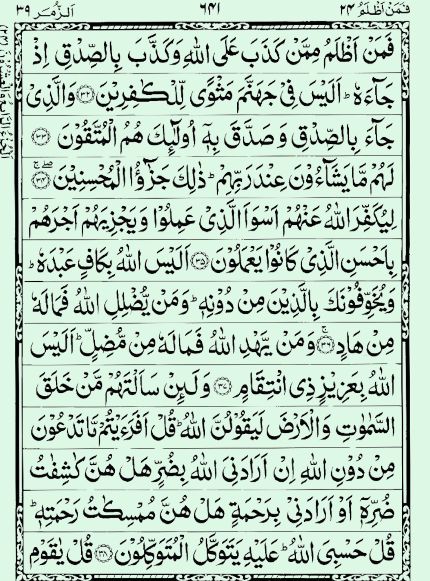 فَمَنْ اَظْلَمُ ٢٤ ٦٤١ اَلزُّمَر ٣٩
فَمَنْ اَظْلَمُ مِمَّنْ كَذَبَ عَلَى اللّٰهِ وَكَذَّبَ بِالصِّدْقِ اِذْ
جَآءَهٗ ؕ اَلَيْسَ فِىْ جَهَنَّمَ مَثْوًى لِّلْكٰفِرِيْنَ ﴿۳۲﴾ وَالَّذِىْ
جَآءَ بِالصِّدْقِ وَصَدَّقَ بِهٖۤ اُولٰٓئِكَ هُمُ الْمُتَّقُوْنَ ﴿۳۳﴾
لَهُمْ مَّا يَشَآءُوْنَ عِنْدَ رَبِّهِمْ ؕ ذٰلِكَ جَزٰٓؤُا الْمُحْسِنِيْنَ ﴿۳۴﴾
لِيُكَفِّرَ اللّٰهُ عَنْهُمْ اَسْوَاَ الَّذِىْ عَمِلُوْا وَيَجْزِيَهُمْ اَجْرَهُمْ
بِاَحْسَنِ الَّذِىْ كَانُوْا يَعْمَلُوْنَ ﴿۳۵﴾ اَلَيْسَ اللّٰهُ بِكَافٍ عَبْدَهٗ ؕ
وَيُخَوِّفُوْنَكَ بِالَّذِيْنَ مِنْ دُوْنِهٖ ؕ وَمَنْ يُّضْلِلِ اللّٰهُ فَمَا لَهٗ
مِنْ هَادٍ ﴿۳۶﴾ وَمَنْ يَّهْدِ اللّٰهُ فَمَا لَهٗ مِنْ مُّضِلٍّ ؕ اَلَيْسَ
اللّٰهُ بِعَزِيْزٍ ذِى انْتِقَامٍ ﴿۳۷﴾ وَلَئِنْ سَاَلْتَهُمْ مَّنْ خَلَقَ
السَّمٰوٰتِ وَالْاَرْضَ لَيَقُوْلُنَّ اللّٰهُ ؕ قُلْ اَفَرَءَيْتُمْ مَّا تَدْعُوْنَ
مِنْ دُوْنِ اللّٰهِ اِنْ اَرَادَنِىَ اللّٰهُ بِضُرٍّ هَلْ هُنَّ كٰشِفٰتُ
ضُرِّهٖۤ اَوْ اَرَادَنِىْ بِرَحْمَةٍ هَلْ هُنَّ مُمْسِكٰتُ رَحْمَتِهٖ ؕ
قُلْ حَسْبِىَ اللّٰهُ ؕ عَلَيْهِ يَتَوَكَّلُ الْمُتَوَكِّلُوْنَ ﴿۳۸﴾ قُلْ يٰقَوْمِ